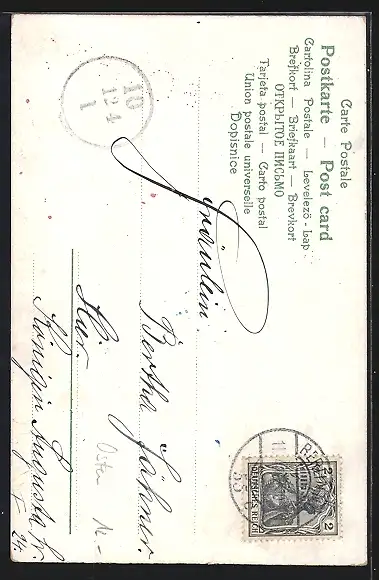 Carte Postale
Postkarte — Post card
Cartolina Postale — Levelező-Lap
Brefkort — Briefkaart — Brevkort
ОТКРЫТОЕ ПИСЬМО
Tarjeta postal — Carto postal
Union postale universelle
Dopisnice
10
12 4
1
2 2
DEUTSCHES REICH
Fräulein
Bertha
Hier.
Königin Augusta Str.
24.